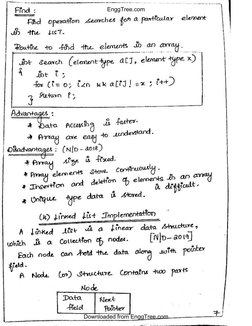 EnggTree.com
Find :
Find operation searches for a particular element
in the LIST.
Routine to find the elements in an array.
int Search (element type a[], element type x)
{
int i ;
for (i = 0; i<n && a[i] != x ; i++)
return i ;
}
Advantages :
* Data Accessing is faster.
* Array are easy to understand.
Disadvantages : (N/D - 2018)
* Array size is fixed.
* Array elements store continuously.
* Insertion and deletion of elements in an array
is difficult.
* Unique type data is stored.
(ii) Linked List Implementation
A Linked list is a linear data structure,
which is a collection of nodes. [N/D - 2019]
Each node can hold the data along with pointer
field.
A Node (or) Structure contains two parts
Node
Data Next
field Pointer
7
Downloaded from EnggTree.com